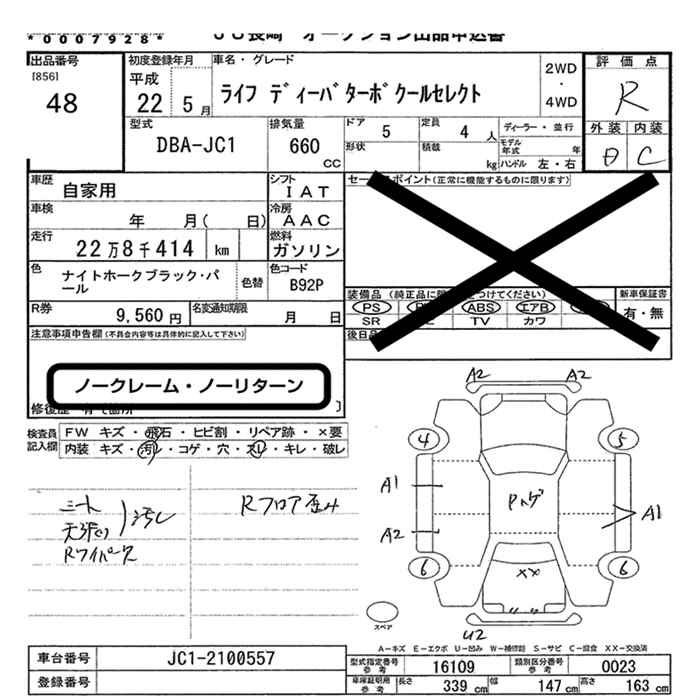 *0007928*
JU長崎 オークション出品申込書
出品番号
[856]
48
初度登録年月
平成
22 5月
車名・グレード
ライフ ディーバターボ クールセレクト
2WD
・
4WD
評価点
R
外装 内装
C
型式
DBA-JC1
排気量
660
CC
ドア
5
定員
4 人
形状
積載
kg
ディーラー・並行
モデル年式 年
ハンドル 左・右
車歴
自家用
シフト
IAT
車検
年 月( 日)
冷房
AAC
走行
22万8千414 km
燃料
ガソリン
色
ナイトホークブラック・パール
色替
色コード
B92P
R券
9,560円
名変通知期限
月 日
セールスポイント(正常に機能するものに限ります)
装備品
PS
ABS
エアB
SR
TV
カワ
新車保証書
有・無
後日品
注意事項申告欄(不具合内容等は具体的に記入して下さい)
ノークレーム・ノーリターン
検査員記入欄
FW キズ・飛石・ヒビ割・リペア跡・×要
内装 キズ・汚レ・コゲ・穴・スレ・キレ・破レ
シート
天張り
汚レ
Rワイパー欠
Rフロア歪み
A2 A2
4 5
A1
A2
A1
6 6
××
U2
スペア
A-キズ E-エクボ U-凹み W-補修跡 S-サビ C-腐食 XX-交換済
車台番号
JC1-2100557
登録番号
型式指定番号
参考
16109
類別区分番号
参考
0023
車庫証明用
参考
長さ 339 cm
幅 147 cm
高さ 163 cm